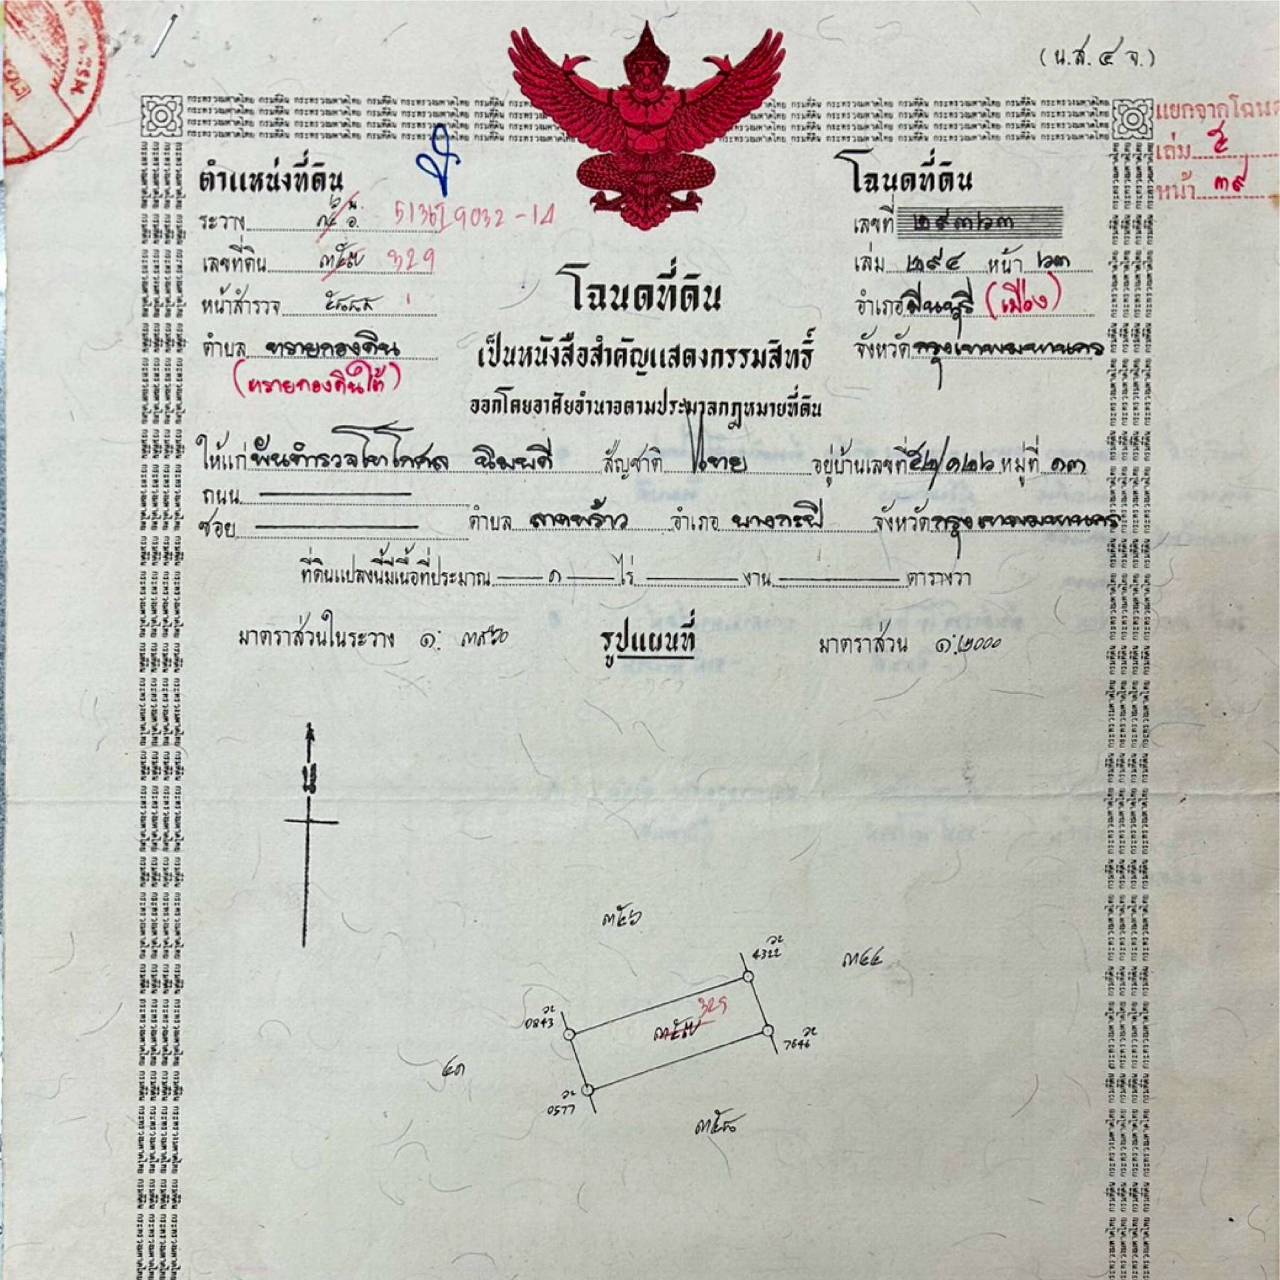 (น.ส.๔ จ.)
แยกจากโฉนด
เล่ม ๕
หน้า ๓๙
ตำแหน่งที่ดิน
ระวาง 5136 I 9032-14
เลขที่ดิน 329
หน้าสำรวจ
ตำบล ทรายกองดิน
(ทรายกองดินใต้)
โฉนดที่ดิน
เลขที่ ๒๙๓๖๓
เล่ม ๒๙๔ หน้า ๖๓
อำเภอ มีนบุรี (เมือง)
จังหวัด กรุงเทพมหานคร
โฉนดที่ดิน
เป็นหนังสือสำคัญแสดงกรรมสิทธิ์
ออกโดยอาศัยอำนาจตามประมวลกฎหมายที่ดิน
ให้แก่ พันตำรวจโทโกศล ฉิมพลี สัญชาติ ไทย อยู่บ้านเลขที่ ๕๒/๑๒๖ หมู่ที่ ๑๓
ถนน
ซอย ตำบล ลาดพร้าว อำเภอ บางกะปิ จังหวัด กรุงเทพมหานคร
ที่ดินแปลงนี้มีเนื้อที่ประมาณ ๑ ไร่ งาน ตารางวา
มาตราส่วนในระวาง ๑: รูปแผนที่ มาตราส่วน ๑:๒๐๐๐
น
๓๔๔
4322
329
0843
7646
๔๑
0577